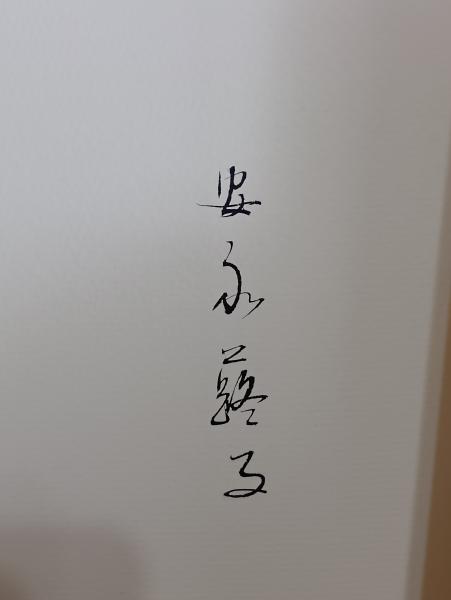 安永蕗子